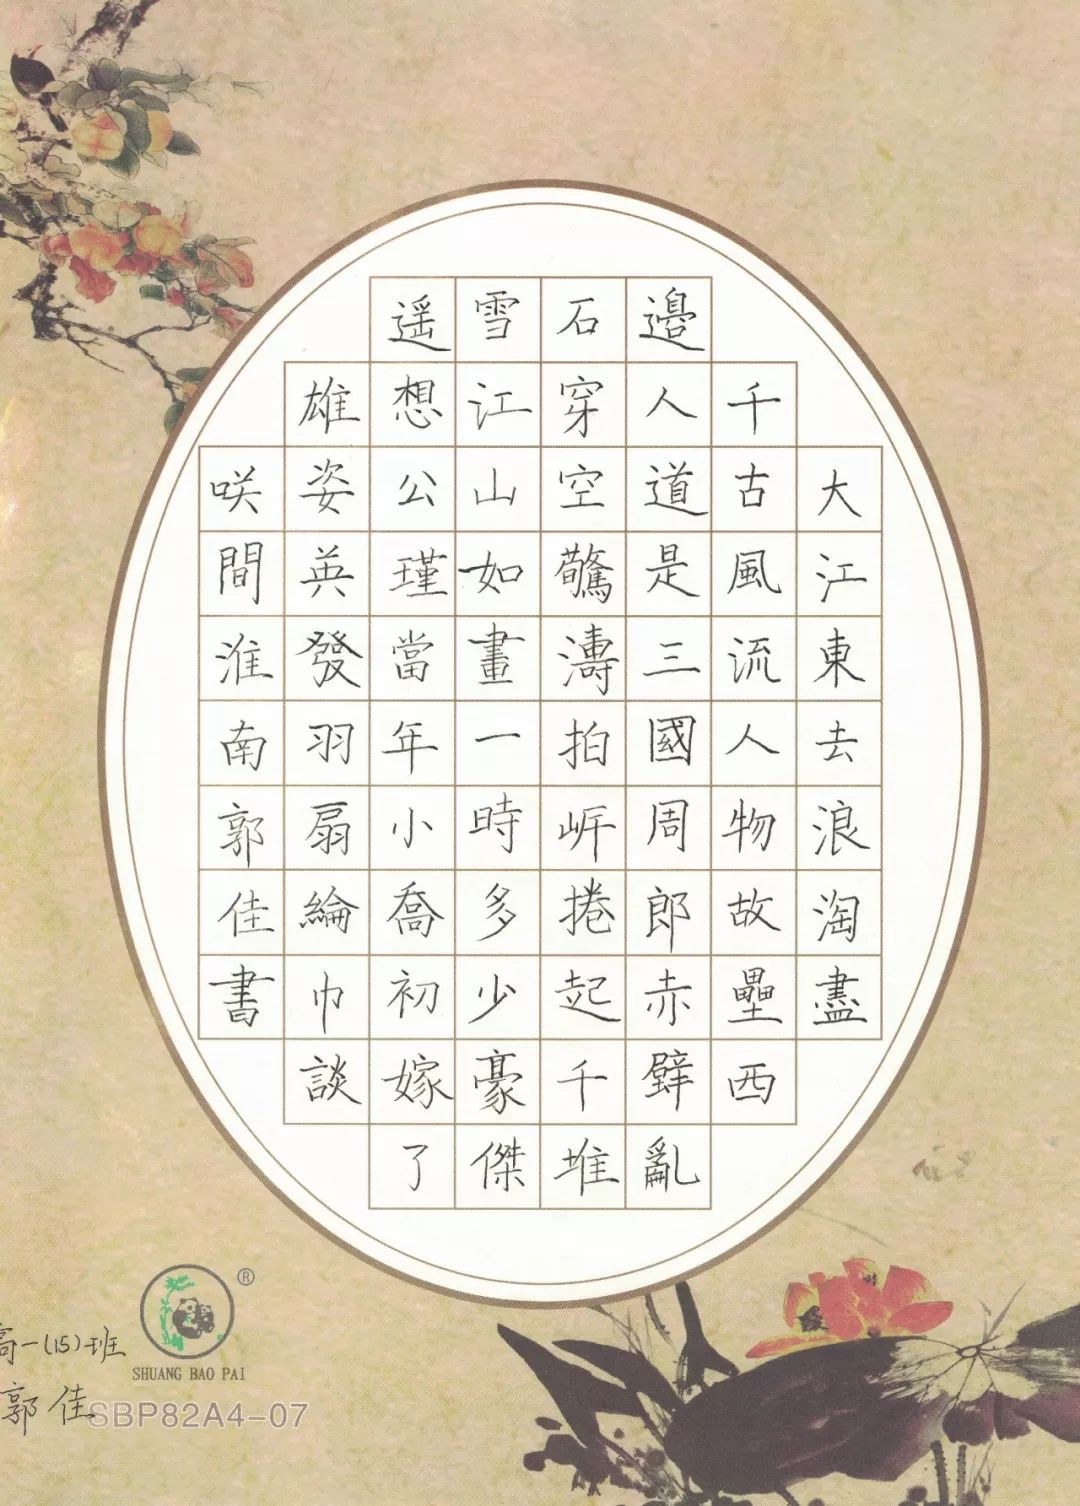 大江東去浪淘盡
千古風流人物故壘西
邊人道是三國周郎赤壁亂
石穿空驚濤拍岸捲起千堆
雪江山如畫一時多少豪傑
遥想公瑾當年小喬初嫁了
雄姿英發羽扇綸巾談
咲間淮南郭佳書
®
SHUANG BAO PAI
高一(15)班
郭佳
SBP82A4-07